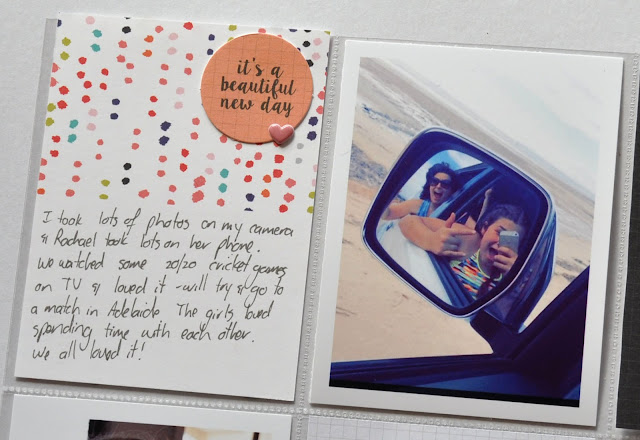 it's a
beautiful
new day
I took lots of photos on my camera
& Rachael took lots on her phone.
We watched some 20/20 cricket games
on TV & loved it - will try & go to
a match in Adelaide. The girls loved
spending time with each other.
We all loved it!